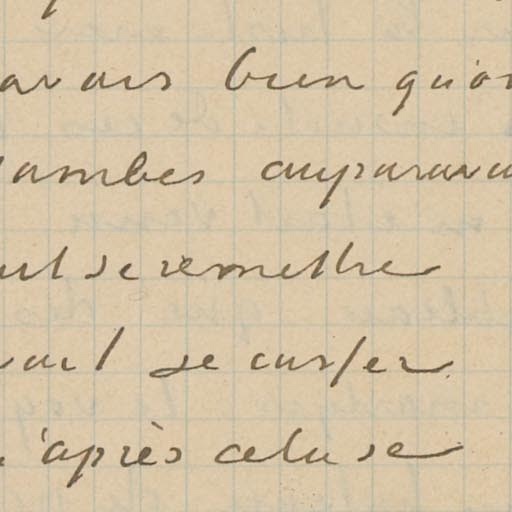 avais bien qu'on
jambes auparava
ut se remettre
vait se casser
'après cela se